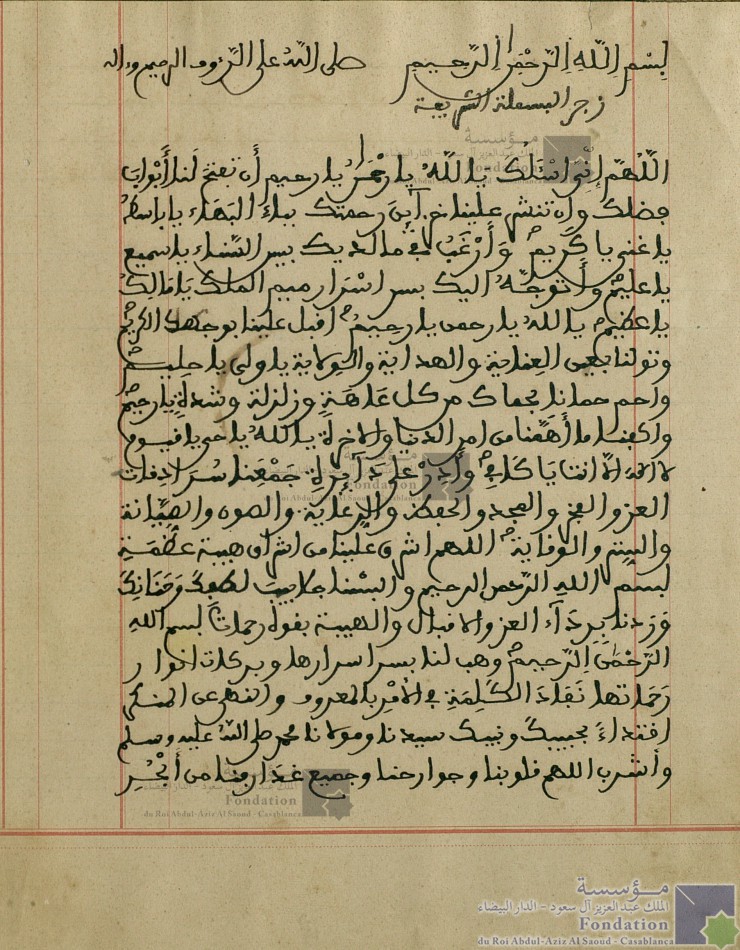 بِسْمِ اللَّهِ الرَّحْمَنِ الرَّحِيمِ صلى الله على الرءوف الرحيم وءاله
زجر البسملة الشريفة
اللَّهُمَّ إِنِّي أسْئَلُكَ يَا اللَّهُ يا رحمنُ يا رحيم أن تفتح لنا أبْوَاب
فضلك وان تنشر علينا خزآئن رحمتك بباء البَهَاء يا باسط
يا غني يا كريمُ وَأَرْغَبُ في ما لديك بسر السَّناء يا سميع
يا عليمُ وأتوجّهُ اليك بسر اسْرَار ميم الملك يَا مَالِكُ
يا عظيمُ يا اللهُ يا رحمن يا رحيمُ اقبل علينا بوجهك الكريم
وتولنا بعين العِنَاية والهداية والوِلاية يا ولي يا حليمُ
واحم حمانا بحماك من كل عَاهَةٍ وزلزلة وشدةٍ يا رحيم
واكفنا ما أهَمَّنَا من امر الدنيا والاخرة يا اللهُ يا حي يا قيوم
لا اله الا انت يَا كَافي وأَدِرْ عَلى دَآئِرةِ جَمْعِنَا سُرَادِقات
العز والفخر والمجد والحفظ والرعاية والصون والصِّيانة
والستر والوقاية اللهم اشرق علينا من اشراق هيبة عظَمَةِ
بسم اللهِ الرّحمن الرحيم والبسنا جلابيبَ لطفك وَحَنَانِكَ
وَرَدِّنا بِرِدَآء العز والاقبال والهيبة بقوة رحماتِ بسم اللهِ
الرّحْمَنِ الرّحيمِ وهب لنا بسر اسرارها وبركات انوار
رَحَمَاتها نَفَاذَ الكَلِمَةِ في الأمْرِ بالمعروف والنهي عن المنكر
اقتداءً بحبيبك ونبيك سيدنا ومولانا محمد صلى الله عليه وسلم
وأشرب اللهم قلوبنا وجوارحنا وجميع عَدَا من أَبْحُرِ
مؤسسة
الملك عبد العزيز آل سعود - الدار البيضاء
Fondation
du Roi Abdul-Aziz Al Saoud - Casablanca